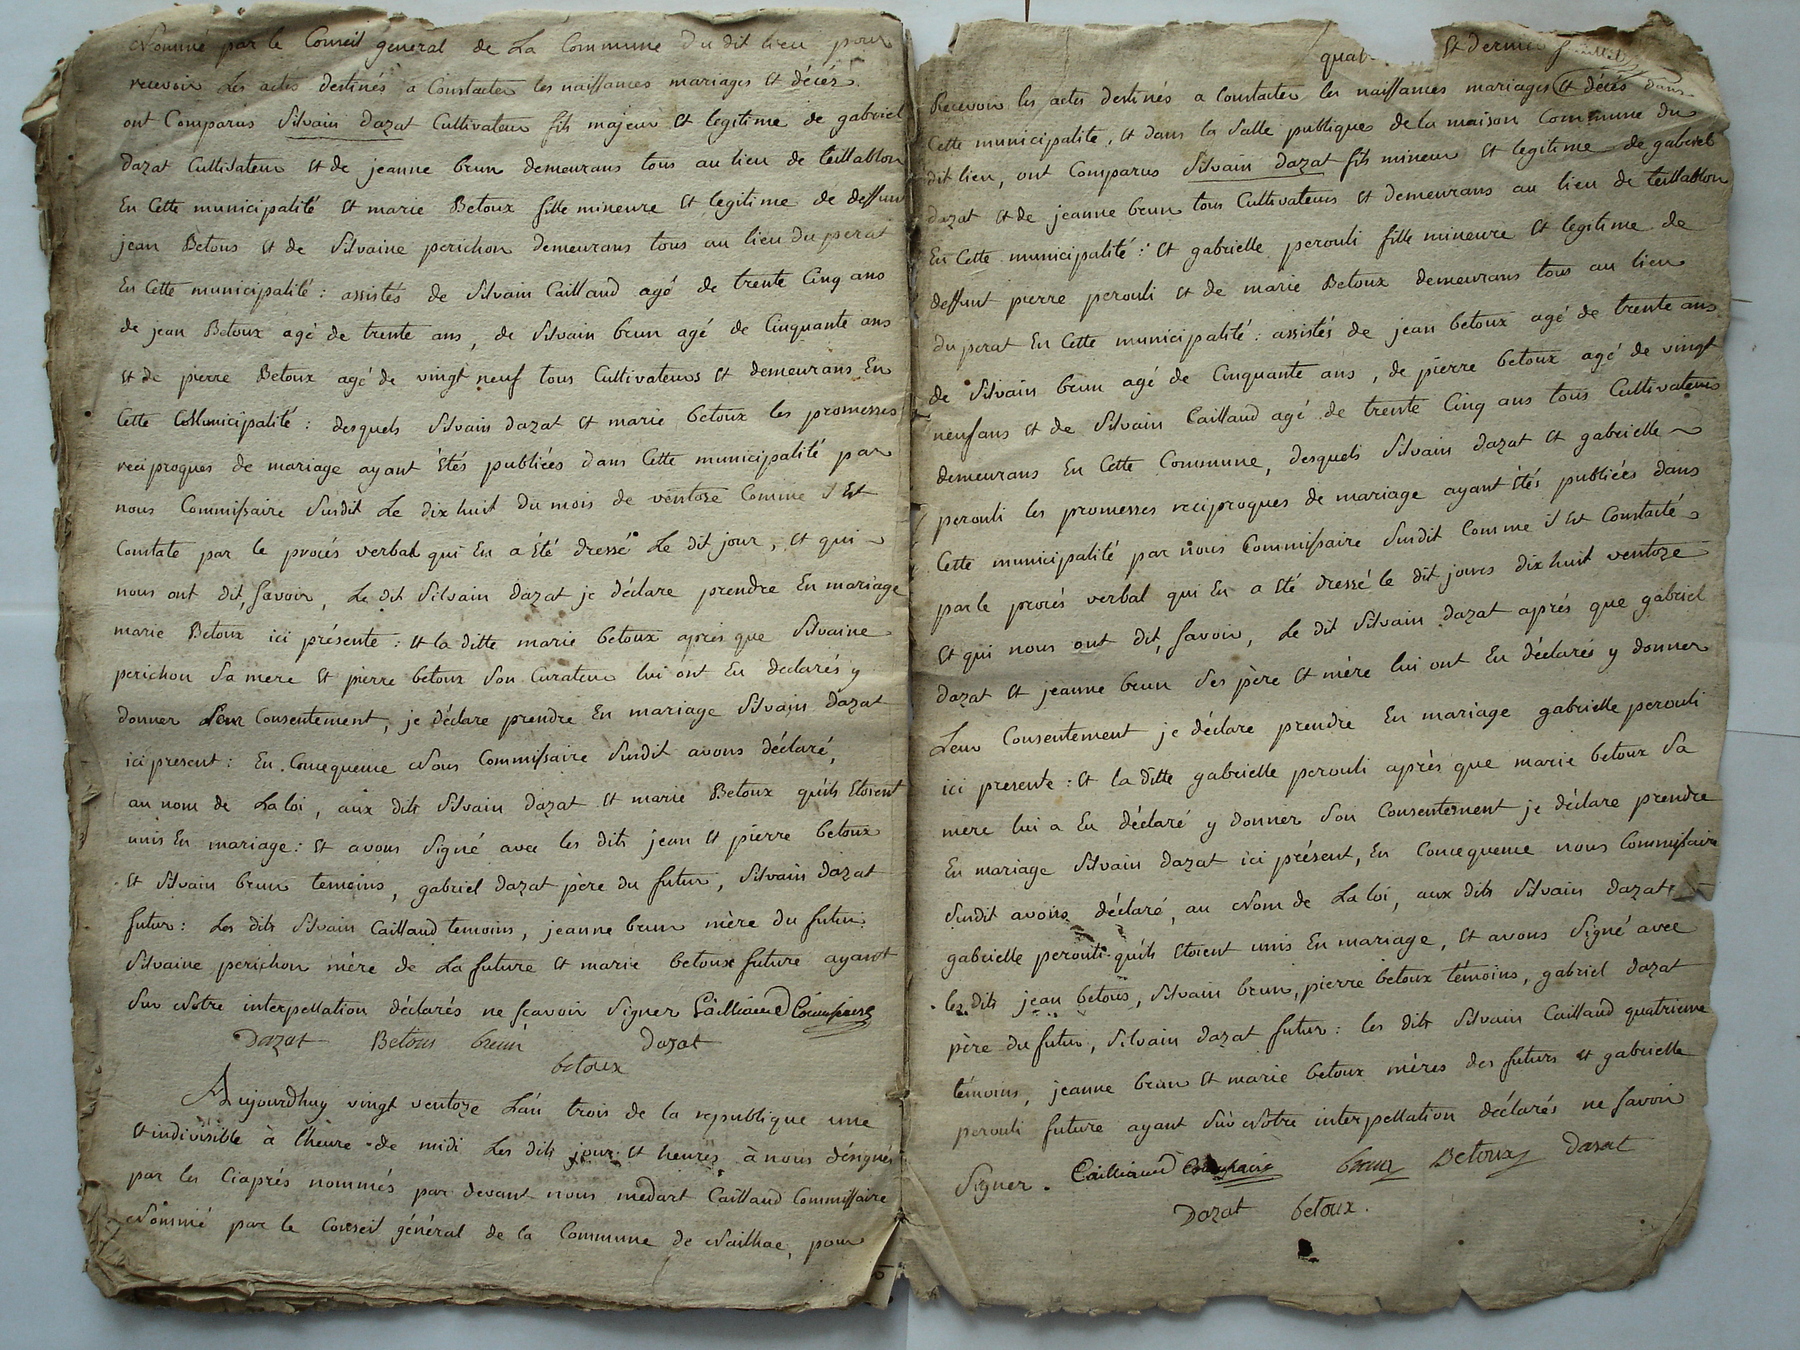 Nommé par le Conseil général de La Commune du dit lieu pour
recevoir Les actes destinés a Constater les naissances mariages et décès
ont Comparus Silvain dazat Cultivateur fils majeur et legitime de gabriel
dazat Cultivateur et de jeanne brun demeurans tous au lieu de teillablon
En Cette municipalité et marie Betoux fille mineure et legitime de deffunt
jean Betous et de Silvaine perichon demeurans tous au lieu du perat
En Cette municipalité : assistés de Silvain Caillaud agé de trente Cinq ans
de jean Betoux agé de trente ans, de Silvain brun agé de Cinquante ans
et de pierre Betoux agé de vingt neuf tous Cultivateurs et demeurans En
Cette Municipalité : desquels Silvain dazat et marie betoux les promesses
reciproques de mariage ayant étés publiées dans Cette municipalité par
nous Commissaire Susdit Le dix huit du mois de ventose Comme il Est
Constaté par le procès verbal qui En a été dressé Le dit jour, et qui
nous ont dit, savoir, Le dit Silvain dazat je déclare prendre En mariage
marie Betoux ici présente : et la ditte marie betoux après que Silvaine
perichon Sa mere et pierre betoux Son Curateur lui ont Eu declarés y
donner Leur Consentement, je déclare prendre En mariage Silvain dazat
ici present : En Concequence Nous Commissaire Susdit avons déclaré,
au nom de La loi, aux dits Silvain dazat et marie Betoux qu'ils Etoient
unis En mariage : et avons Signé avec les dits jean et pierre betoux
et Silvain brun temoins, gabriel dazat père du futur, Silvain dazat
futur : Les dits Silvain Caillaud temoins, jeanne brun mère du futur
Silvaine perichon mère de La future et marie betoux future ayant
Sur Notre interpellation déclarés ne scavoir Signer Cailliaud Commissaire
Dazat Betous brun dazat
betoux
Aujourdhuy vingt ventoze L'an trois de la republique une
et indivisible à l'heure de midi Les dits jour et heures à nous désignés
par les Ciaprés nommés par devant nous medart Caillaud Commissaire
Nommé par le Conseil général de la Commune de Nailhac, pour
quat et dernier feuillet
Recevoir les actes destinés a Constater les naissances mariages et décès dans
Cette municipalité, et dans la Salle publique de la maison Commune du
dit lieu, ont Comparus Silvain dazat fils mineur et legitime de gabriel
dazat et de jeanne brun tous Cultivateurs et demeurans au lieu de teillablon
En Cette municipalité : et gabrielle perouli fille mineure et legitime de
deffunt pierre perouli et de marie Betoux demeurans tous au lieu
du perat En Cette municipalité : assistés de jean betoux agé de trente ans
de Silvain brun agé de Cinquante ans, de pierre betoux agé de vingt
neuf ans et de Silvain Caillaud agé de trente Cinq ans tous Cultivateurs
demeurans En Cette Commune, desquels Silvain dazat et gabrielle
perouli les promesses reciproques de mariage ayant étés publiées dans
Cette municipalité par nous Commissaire Susdit Comme il Est Constaté
par le procès verbal qui En a Eté dressé le dit jours dix huit ventoze
et qui nous ont dit, savoir, Le dit Silvain dazat après que gabriel
dazat et jeanne brun Ses père et mère lui ont Eu déclarés y donner
Leur Consentement je déclare prendre En mariage gabrielle perouli
ici presente : et la ditte gabrielle perouli après que marie betoux Sa
mère lui a Eu déclaré y donner Son Consentement je déclare prendre
En mariage Silvain dazat ici présent, En Concequence nous Commissaire
Susdit avons déclaré, au Nom de La loi, aux dits Silvain dazat et
gabrielle perouti qu'ils Etoient unis En mariage, et avons Signé avec
les dits jean betous, Silvain brun, pierre betoux témoins, gabriel dazat
père du futur, Silvain dazat futur : les dits Silvain Caillaud quatrieme
témoins, jeanne brun et marie betoux mères des futurs et gabrielle
perouli future ayant Sur Notre interpellation déclarés ne savoir
Signer. Cailliaud Commissaire brun Betoux Dazat
Dazat betoux.